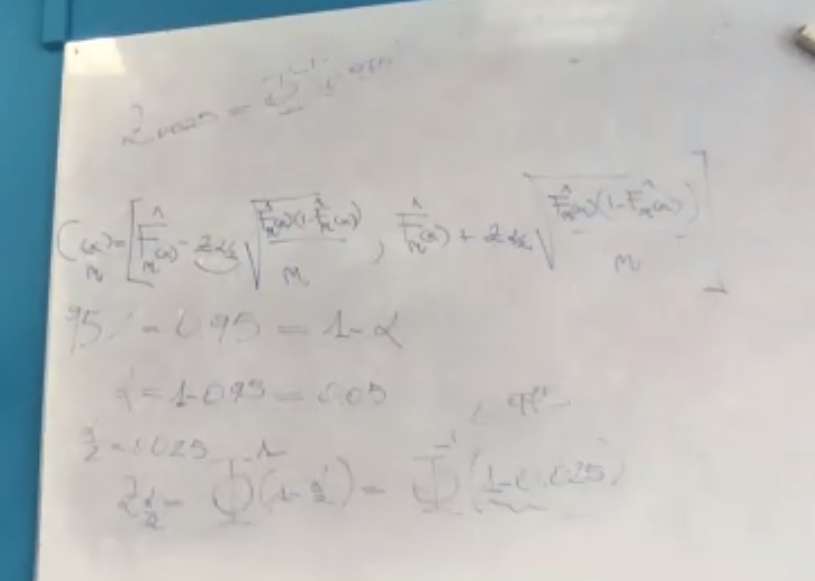 Z₀.₀₂₅ = Φ⁻¹(
Cₙ(x) = [F̂ₙ(x) - Z_{α/2} √(F̂ₙ(x)(1-F̂ₙ(x))/n) , F̂ₙ(x) + Z_{α/2} √(F̂ₙ(x)(1-F̂ₙ(x))/n)]
95% = 0.95 = 1-α
α = 1-0.95 = 0.05
α/2 = 0.025
Z_{α/2} = Φ⁻¹(1-α/2) = Φ⁻¹(1-0.025)